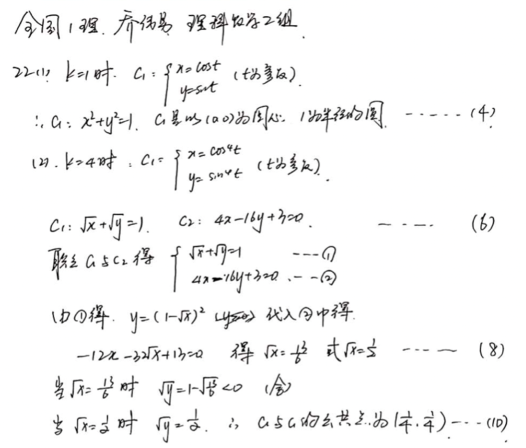 全国1理. 乔伟易 理科数学2组.
22(1). k=1时. C₁: { x=cost y=sint (t为参数).
∴ C₁: x²+y²=1. C₁是以(0,0)为圆心 1为半径的圆. ······(4)
(2). k=4时. C₁: { x=cos⁴t y=sin⁴t (t为参数).
C₁: √x+√y=1. C₂: 4x-16y+3=0. ---- (6)
联立C₁与C₂得 { √x+√y=1 ---① 4x-16y+3=0 ---②
由①得. y=(1-√x)² 代入②中得.
-12x-32√x+13=0 得 √x=13/6 或√x=1/2 ---- (8)
当√x=13/6时 √y=1-√13/6<0 (舍)
当√x=1/2时 √y=1/2. ∴ C₁与C₂的公共点为(1/4,1/4)---(10)